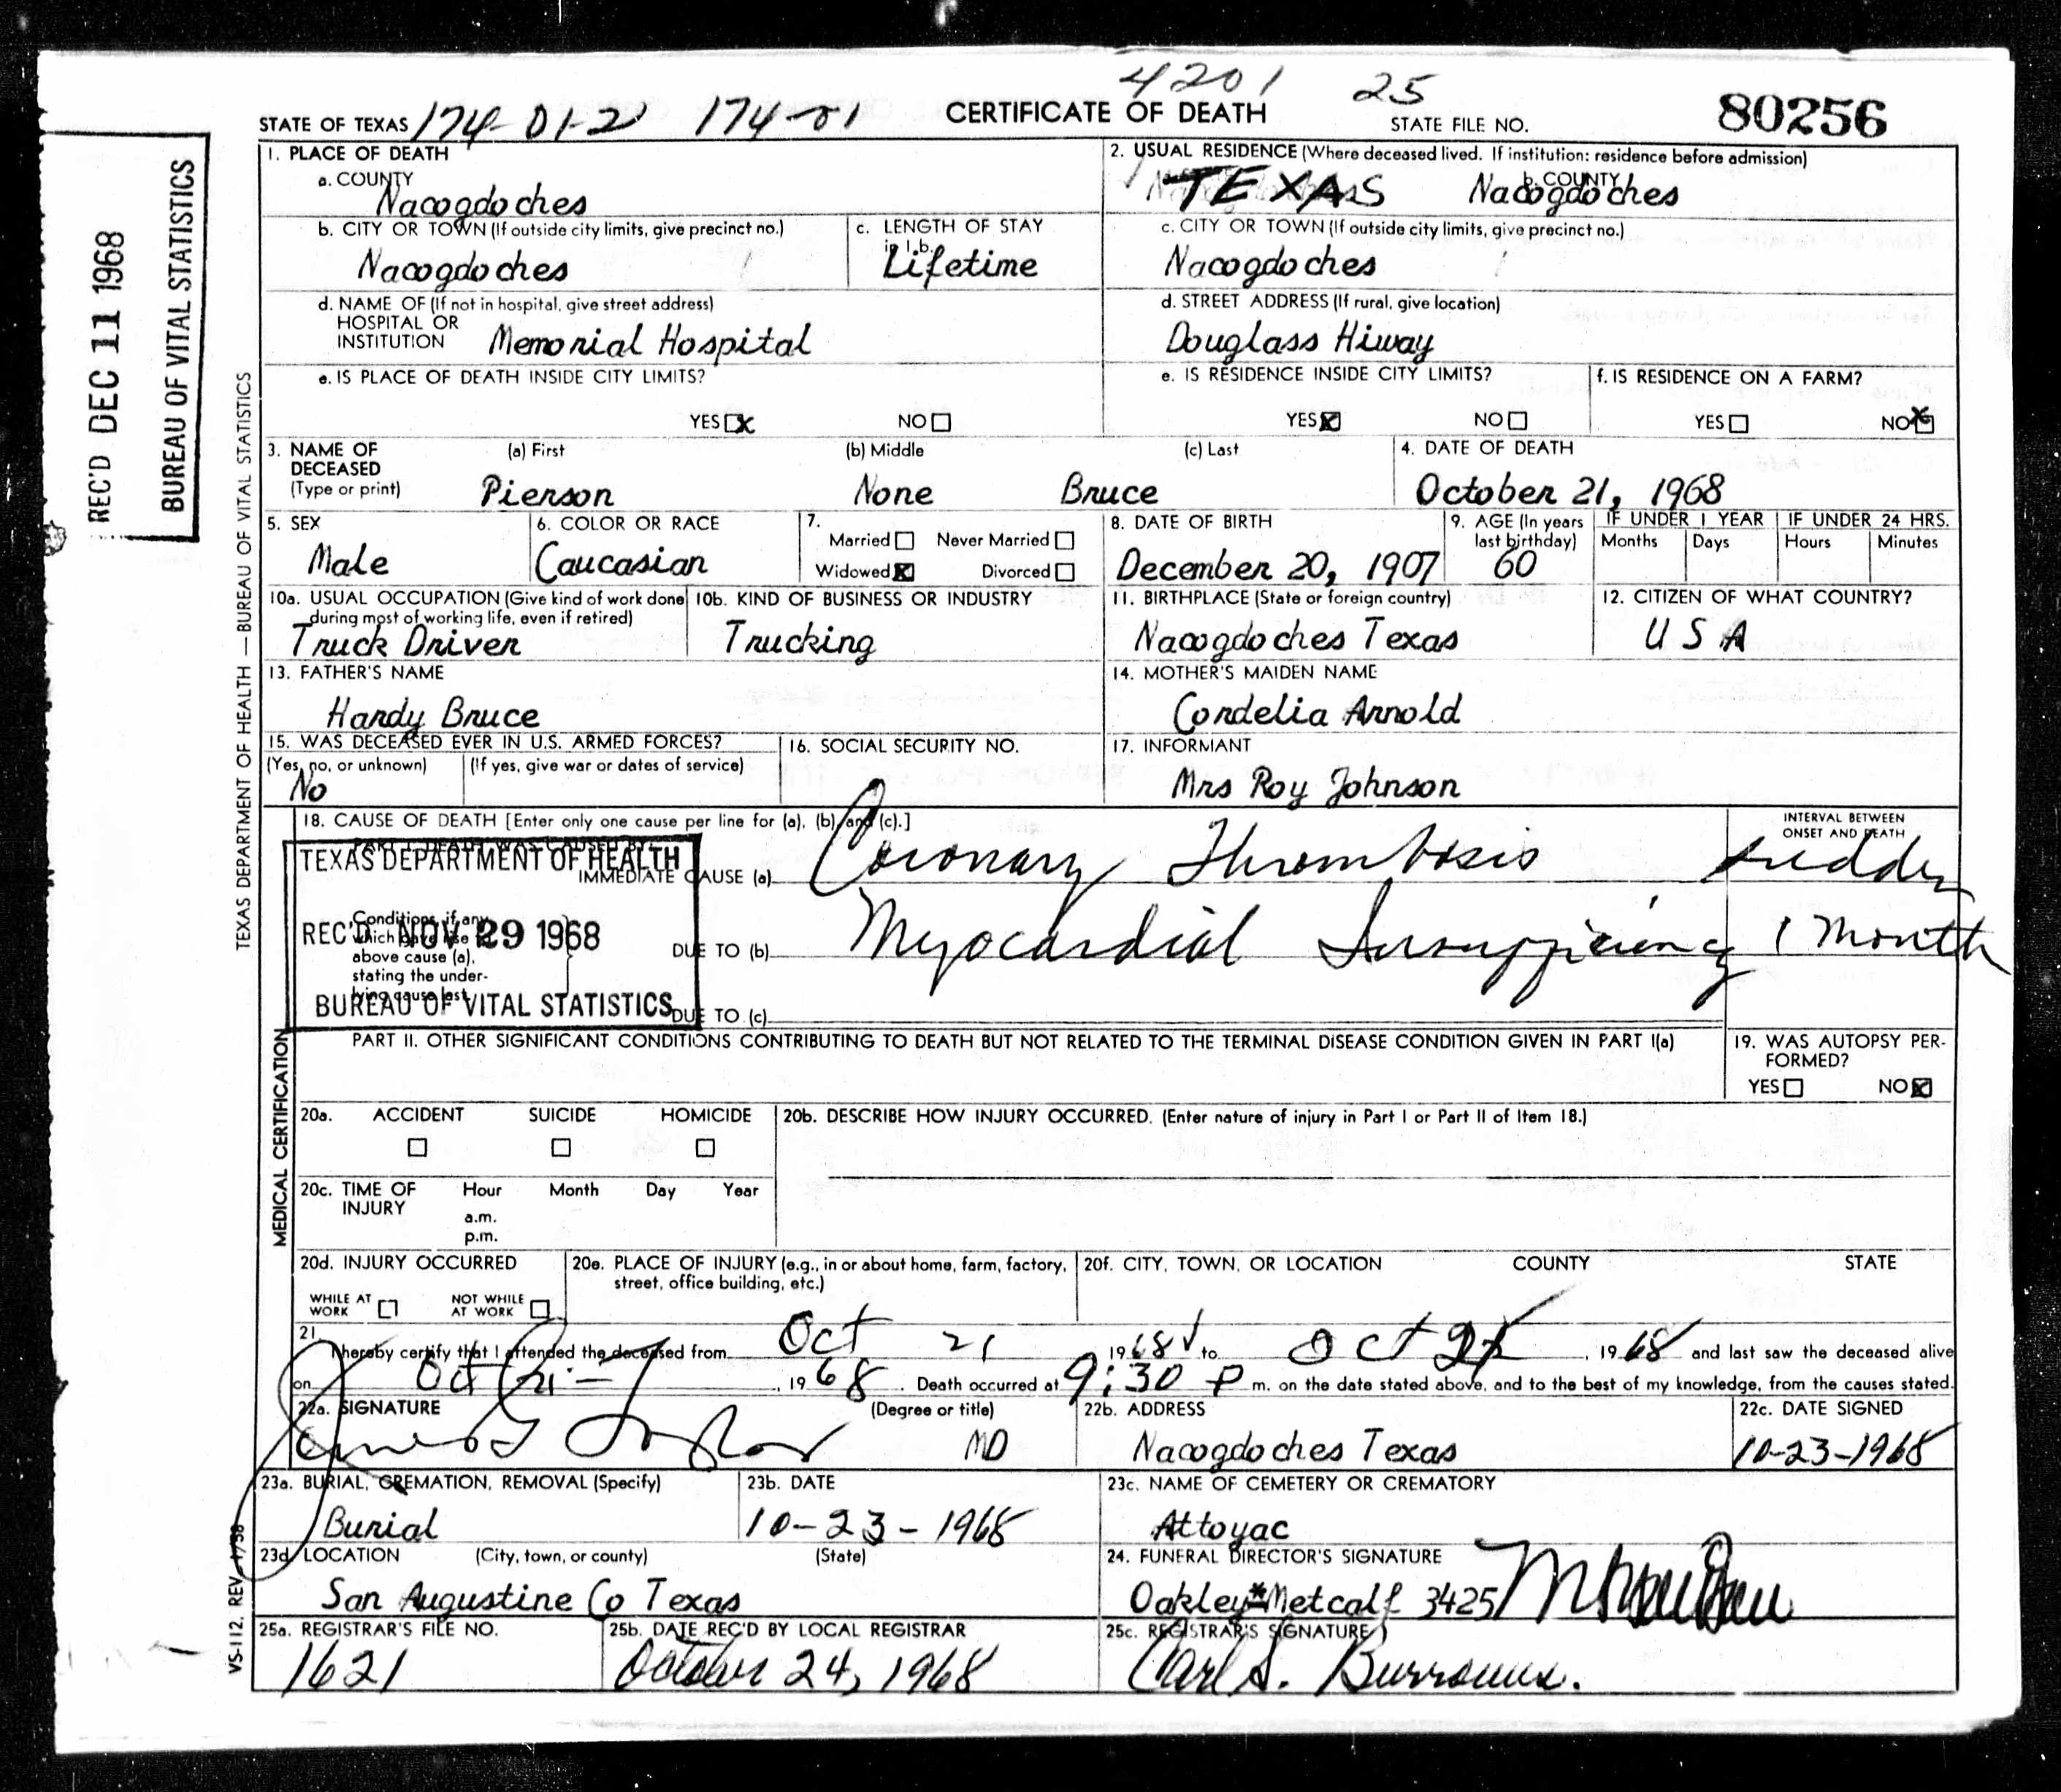 4201 25
STATE OF TEXAS 174-01-2 174-01 CERTIFICATE OF DEATH STATE FILE NO. 80256
REC'D DEC 11 1968
BUREAU OF VITAL STATISTICS
TEXAS DEPARTMENT OF HEALTH — BUREAU OF VITAL STATISTICS
1. PLACE OF DEATH
a. COUNTY
Nacogdoches
2. USUAL RESIDENCE (Where deceased lived. If institution: residence before admission)
TEXAS
b. COUNTY
Nacogdoches
b. CITY OR TOWN (If outside city limits, give precinct no.)
Nacogdoches
c. LENGTH OF STAY
in 1.b.
Lifetime
c. CITY OR TOWN (If outside city limits, give precinct no.)
Nacogdoches
d. NAME OF (If not in hospital, give street address)
HOSPITAL OR
INSTITUTION Memorial Hospital
d. STREET ADDRESS (If rural, give location)
Douglass Hiway
e. IS PLACE OF DEATH INSIDE CITY LIMITS?
YES X NO
e. IS RESIDENCE INSIDE CITY LIMITS?
YES X NO
f. IS RESIDENCE ON A FARM?
YES NO X
3. NAME OF DECEASED (Type or print)
(a) First (b) Middle (c) Last
Pierson None Bruce
4. DATE OF DEATH
October 21, 1968
5. SEX
Male
6. COLOR OR RACE
Caucasian
7.
Married Never Married
Widowed X Divorced
8. DATE OF BIRTH
December 20, 1907
9. AGE (In years
last birthday)
60
IF UNDER 1 YEAR IF UNDER 24 HRS.
Months Days Hours Minutes
10a. USUAL OCCUPATION (Give kind of work done
during most of working life, even if retired)
Truck Driver
10b. KIND OF BUSINESS OR INDUSTRY
Trucking
11. BIRTHPLACE (State or foreign country)
Nacogdoches Texas
12. CITIZEN OF WHAT COUNTRY?
U S A
13. FATHER'S NAME
Handy Bruce
14. MOTHER'S MAIDEN NAME
Cordelia Arnold
15. WAS DECEASED EVER IN U.S. ARMED FORCES?
(Yes, no, or unknown) (If yes, give war or dates of service)
No
16. SOCIAL SECURITY NO.
17. INFORMANT
Mrs Roy Johnson
MEDICAL CERTIFICATION
18. CAUSE OF DEATH [Enter only one cause per line for (a), (b) and (c).]
INTERVAL BETWEEN
ONSET AND DEATH
PART I. DEATH WAS CAUSED BY:
IMMEDIATE CAUSE (a) Coronary Thrombosis sudden
TEXAS DEPARTMENT OF HEALTH
REC'D NOV 29 1968
BUREAU OF VITAL STATISTICS
Conditions, if any,
which gave rise to
above cause (a),
stating the under-
lying cause last.
DUE TO (b) Myocardial Insufficiency 1 Month
DUE TO (c)
PART II. OTHER SIGNIFICANT CONDITIONS CONTRIBUTING TO DEATH BUT NOT RELATED TO THE TERMINAL DISEASE CONDITION GIVEN IN PART I(a)
19. WAS AUTOPSY PER-
FORMED?
YES NO X
20a. ACCIDENT SUICIDE HOMICIDE
20b. DESCRIBE HOW INJURY OCCURRED. (Enter nature of injury in Part I or Part II of Item 18.)
20c. TIME OF INJURY Hour Month Day Year
a.m.
p.m.
20d. INJURY OCCURRED
WHILE AT WORK NOT WHILE AT WORK
20e. PLACE OF INJURY (e.g., in or about home, farm, factory,
street, office building, etc.)
20f. CITY, TOWN, OR LOCATION COUNTY STATE
21.
I hereby certify that I attended the deceased from Oct 21 1968 to Oct 21, 1968 and last saw the deceased alive
on Oct 21, 1968. Death occurred at 9:30 P m. on the date stated above, and to the best of my knowledge, from the causes stated.
22a. SIGNATURE (Degree or title)
MD
22b. ADDRESS
Nacogdoches Texas
22c. DATE SIGNED
10-23-1968
23a. BURIAL, CREMATION, REMOVAL (Specify)
Burial
23b. DATE
10-23-1968
23c. NAME OF CEMETERY OR CREMATORY
Attoyac
23d. LOCATION (City, town, or county) (State)
San Augustine Co Texas
24. FUNERAL DIRECTOR'S SIGNATURE
Oakley*Metcalf 3425
25a. REGISTRAR'S FILE NO.
1621
25b. DATE REC'D BY LOCAL REGISTRAR
October 24, 1968
25c. REGISTRAR'S SIGNATURE
Carl S. Burrows.
VS-112. REV. 1/58